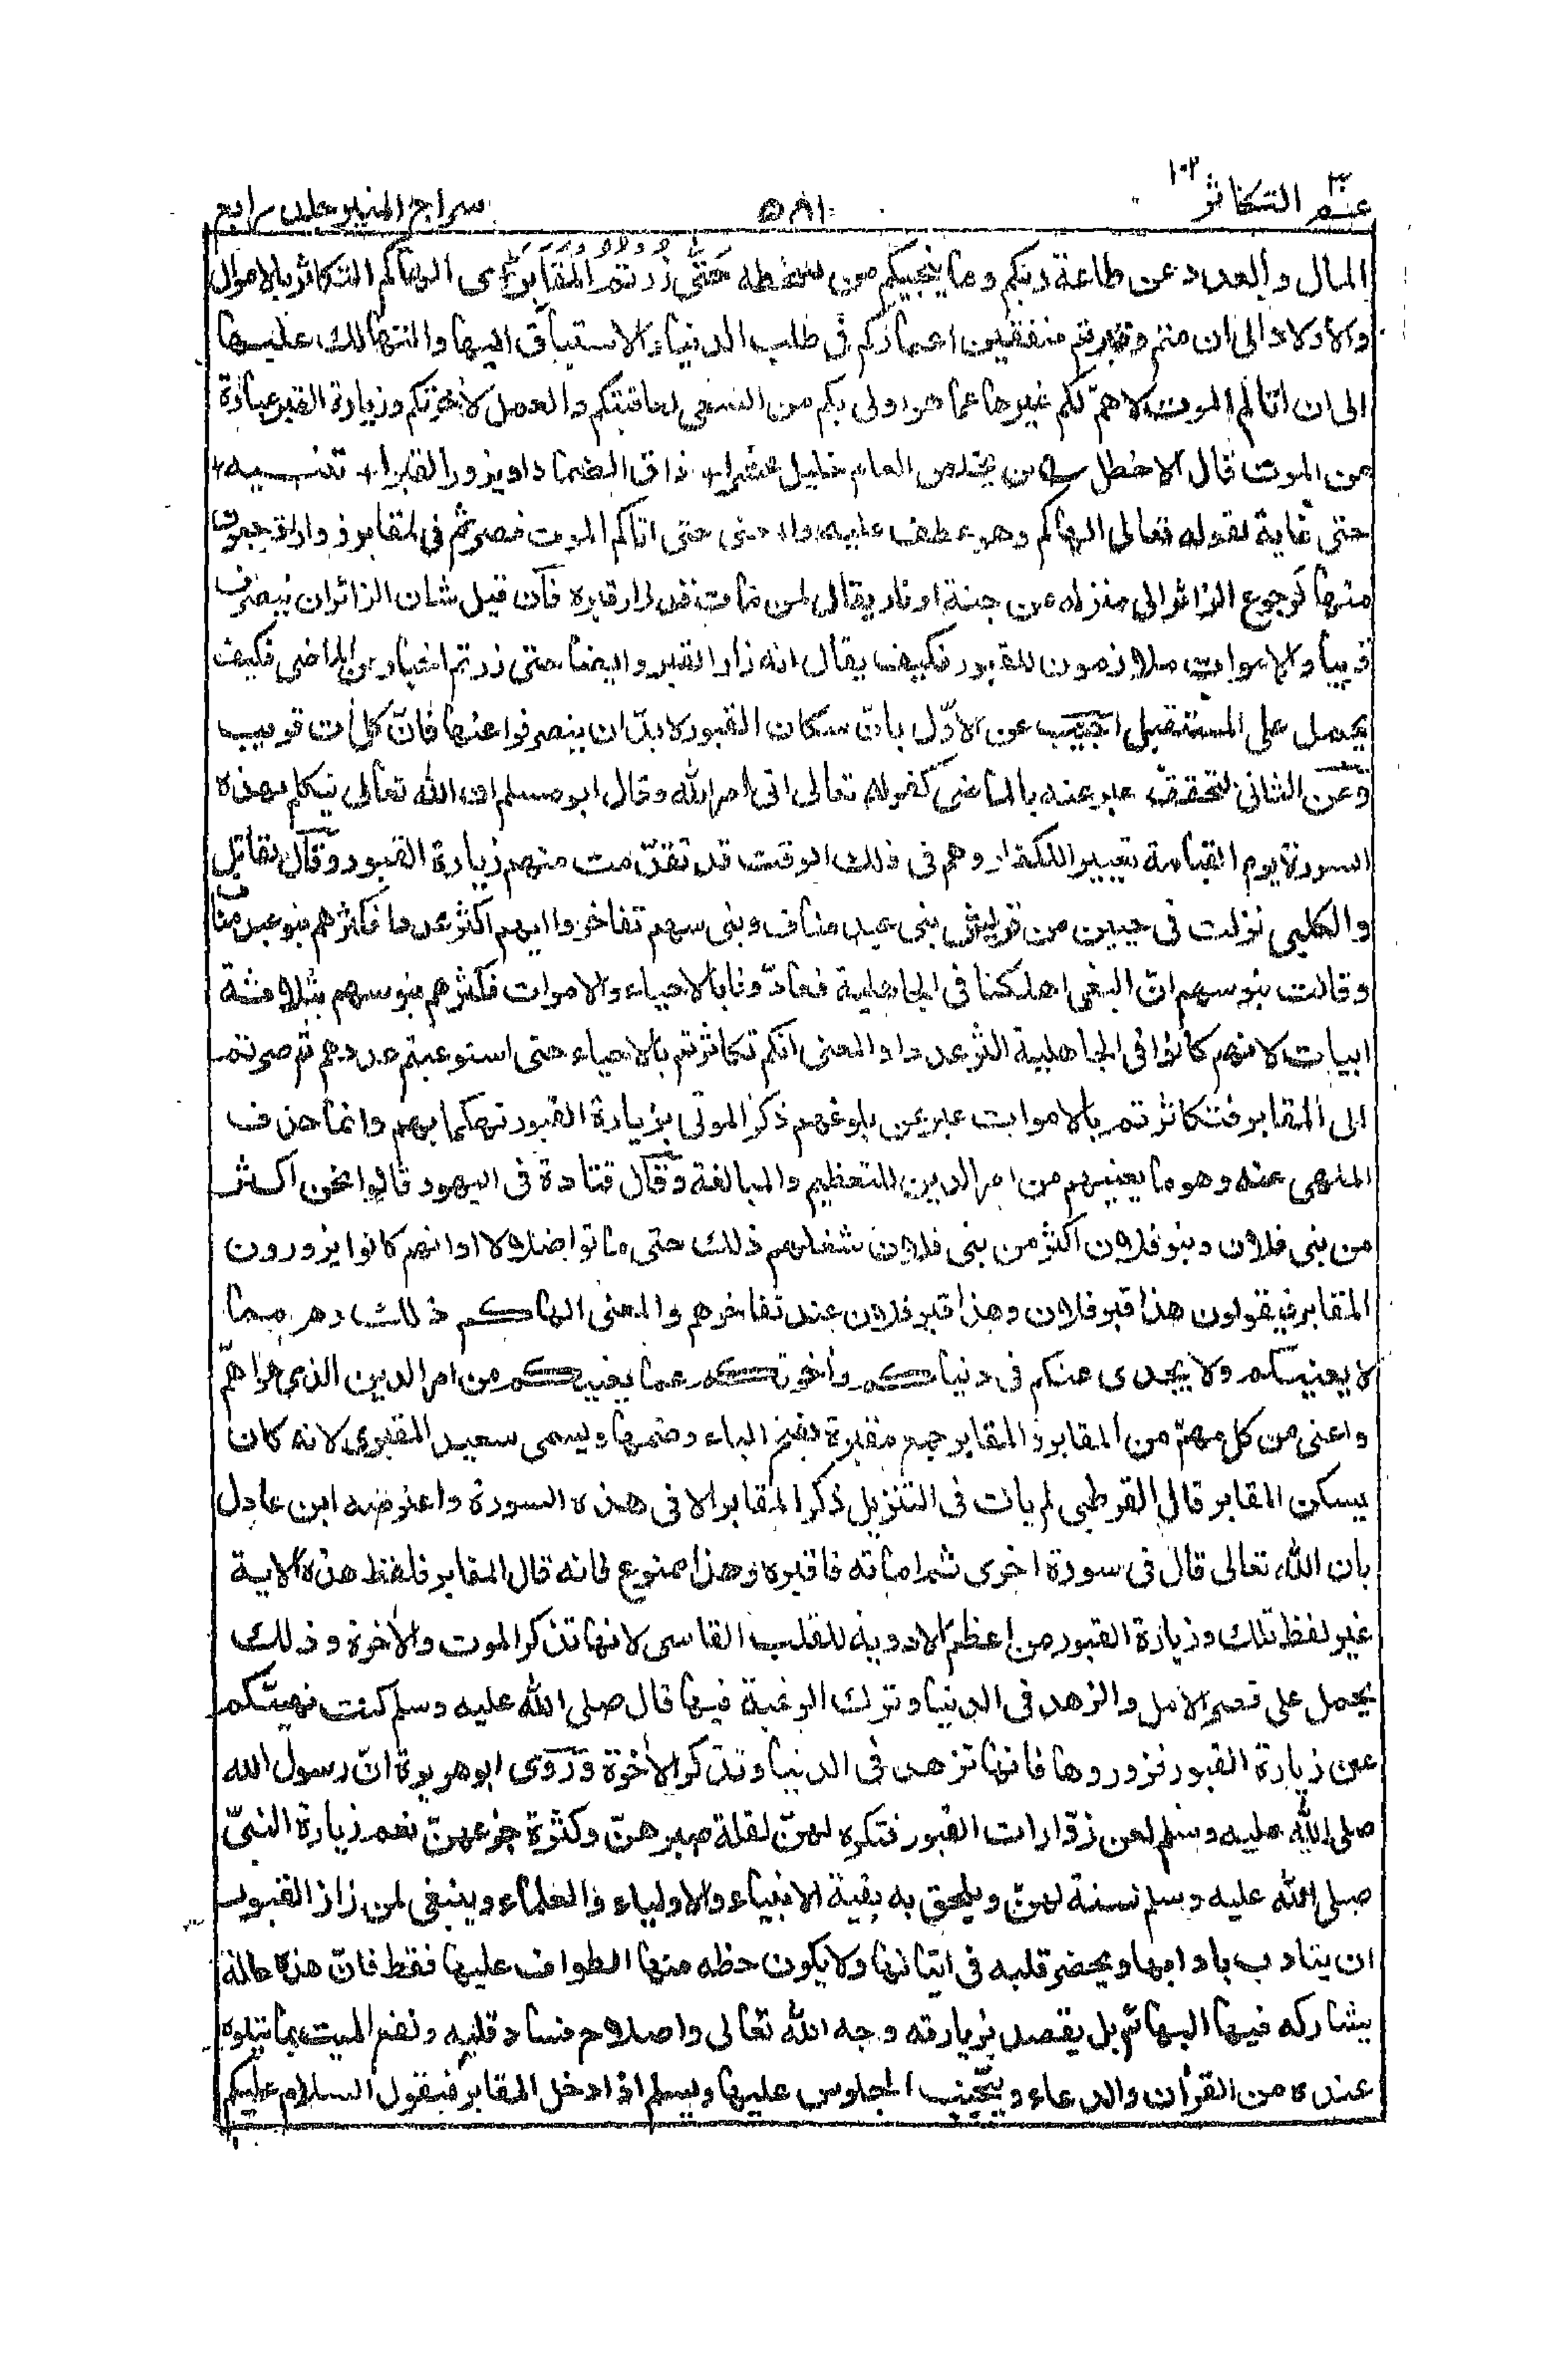 عم ٣٠ التكاثر ١٠٢
٥٨١
سراج المنير جلد رابع
المال والعدد عن طاعة ربكم وما ينجيكم من سخطه حَتّٰى زُرْتُمُ الْمَقَابِرَ اى الهاكم التكاثر بالاموال
والاولاد الى ان متم وقبرتم منفقين اعماركم فى طلب الدنيا والاستباق اليها والتهالك عليها
الى ان اتاكم الموت لاهمّ لكم غيرها عما هو اولى بكم من السعى لعاقبتكم والعمل لآخرتكم وزيارة القبر عبارة
عن الموت قال الاخطل
حتى غاية لقوله تعالى الهاكم وهو عطف عليه والمعنى حتى اتاكم الموت فصرتم فى المقابر زوارا ترجعون
منها كرجوع الزائر الى منزله من جنة او نار يقال لمن مات قد زار قبره فان قيل شان الزائر ان ينصرف
قريبا والاموات ملازمون للقبور فكيف يقال انه زار القبر وايضا حتى زرتم اخبار عن الماضى فكيف
يحمل على المستقبل اجيب عن الاوّل بانّ سكان القبور لابدّ ان ينصرفوا عنها فانّ كل اٰت قريب
وعن الثانى لتحققه عبر عنه بالماضى كقوله تعالى اتى امر الله وقال ابو مسلم ان الله تعالى يتكلم بهذه
السورة يوم القيامة تعييرا للكفار وهم فى ذلك الوقت قد تقدّمت منهم زيارة القبور وقال مقاتل
والكلبى نزلت فى حيين من قريش بنى عبد مناف وبنى سهم تفاخروا ايهم اكثر عددا فكثرهم بنو عبد مناف
وقالت بنو سهم انّ البغى اهلكنا فى الجاهلية فعادّونا بالاحياء والاموات فكثرهم بنو سهم بثلاثة
ابيات لانهم كانوا فى الجاهلية اكثر عددا والمعنى انكم تكاثرتم بالاحياء حتى استوعبتم عددهم ثم صرتم
الى المقابر فتكاثرتم بالاموات عبر عن بلوغهم ذكر الموتى بزيارة القبور تهكما بهم وانما حذف
المنهى عنه وهو ما يعنيهم من امر الدين للتعظيم والمبالغة وقال قتادة فى اليهود قالوا نحن اكثر
من بنى فلان وبنو فلان اكثر من بنى فلان شغلهم ذلك حتى ماتوا ضلالا او انهم كانوا يزورون
المقابر فيقولون هذا قبر فلان وهذا قبر فلان عند تفاخرهم والمعنى الهاكم ذلك وهو مما
لا يعنيكم ولا يجدى عنكم فى دنياكم وأخرتكم عما يعنيكم من امر الدين الذى هو اهمّ
واعنى من كل مهمّ من المقابر والمقابر جمع مقبرة بفتح الباء وضمها ويسمى سعيد المقبرى لانه كان
يسكن المقابر قال القرطبى لم يات فى التنزيل ذكر المقابر الا فى هذه السورة واعترضه ابن عادل
بان الله تعالى قال فى سورة اخرى ثم اماته فاقبره وهذا ممنوع فانه قال المقابر فلفظ هذه الاٰية
غير لفظ تلك وزيارة القبور من اعظم الادوية للقلب القاسى لانها تذكر الموت والاٰخرة وذلك
يحمل على قصر الامل والزهد فى الدنيا وترك الرغبة فيها قال صلى الله عليه وسلم كنت نهيتكم
عن زيارة القبور فزوروها فانها تزهد فى الدنيا وتذكر الاٰخرة وروى ابو هريرة انّ رسول الله
صلى الله عليه وسلم لعن زوّارات القبور فتكره لهنّ لقلة صبرهنّ وكثرة جزعهنّ نعم زيارة النبىّ
صلى الله عليه وسلم سنة لهنّ ويلحق به بقية الانبياء والاولياء والعلماء وينبغى لمن زار القبور
ان يتادب باٰدابها ويحضر قلبه فى اتيانها ولا يكون حظه منها الطواف عليها فقط فانّ هذه حالة
يشاركه فيها البهائم بل يقصد بزيارته وجه الله تعالى واصلاح فساد قلبه ونفع الميت بما يتلوه
عنده من القراٰن والدعاء ويتجنب الجلوس عليها ويسلم اذا دخل المقابر فيقول السلام عليكم